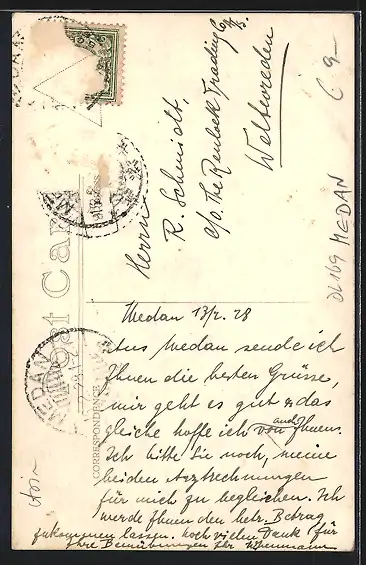 Post Card
CORRESPONDENCE
MEDAN
Herrn
R. Schmidt,
c/o. The Renlock Trading Co
Weltevreden
C 9-
MEDAN
Asia
Medan 13/2. 28
Aus Medan sende ich
Ihnen die besten Grüsse,
mir geht es gut & das
gleiche hoffe ich von auch Ihnen.
Ich bitte Sie noch, meine
beiden Arztrechnungen
für mich zu begleichen. Ich
werde Ihnen den betr. Betrag
zukommen lassen. Noch vielen Dank für
Ihre Bemühungen Ihr